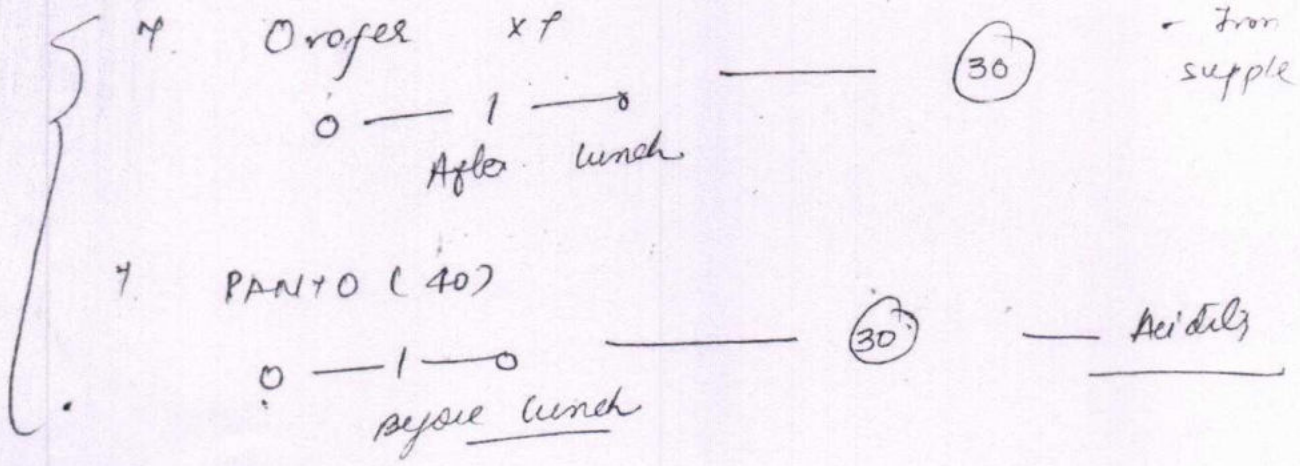 T Orofer XT
30
- Iron
supple
0 — 1 — 0
After lunch
T PANTO (40)
30 — Acidity
0 — 1 — 0
Before lunch